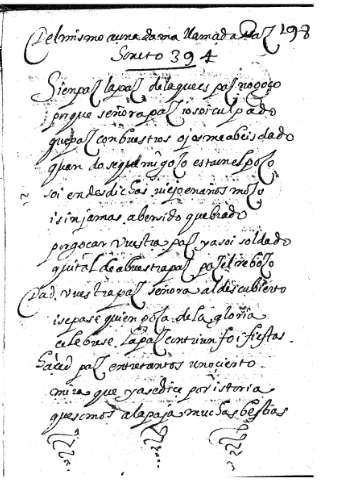 Del mismo a una dama llamada Paz 198
Soneto 394
Si en paz la paz de la que es paz no gozo
porque señora paz io soi culpado
que paz con buestros ojos me abeis dado
quando se que mi gozo esta en el pozo
soi en desdichas viejo en años mozo
i sin jamas aber sido quebrado
por gozar vuestra paz ya soi soldado
quitalde a buestra paz paz el rebozo
Dad vuestra paz señora al descubierto
i sepase quien goza de la gloria
celebrese la paz con triunfo i fiestas
haced paz entre tantos uno cierto
mira que ya se dice por istoria
questemos a la paja muchas bestias